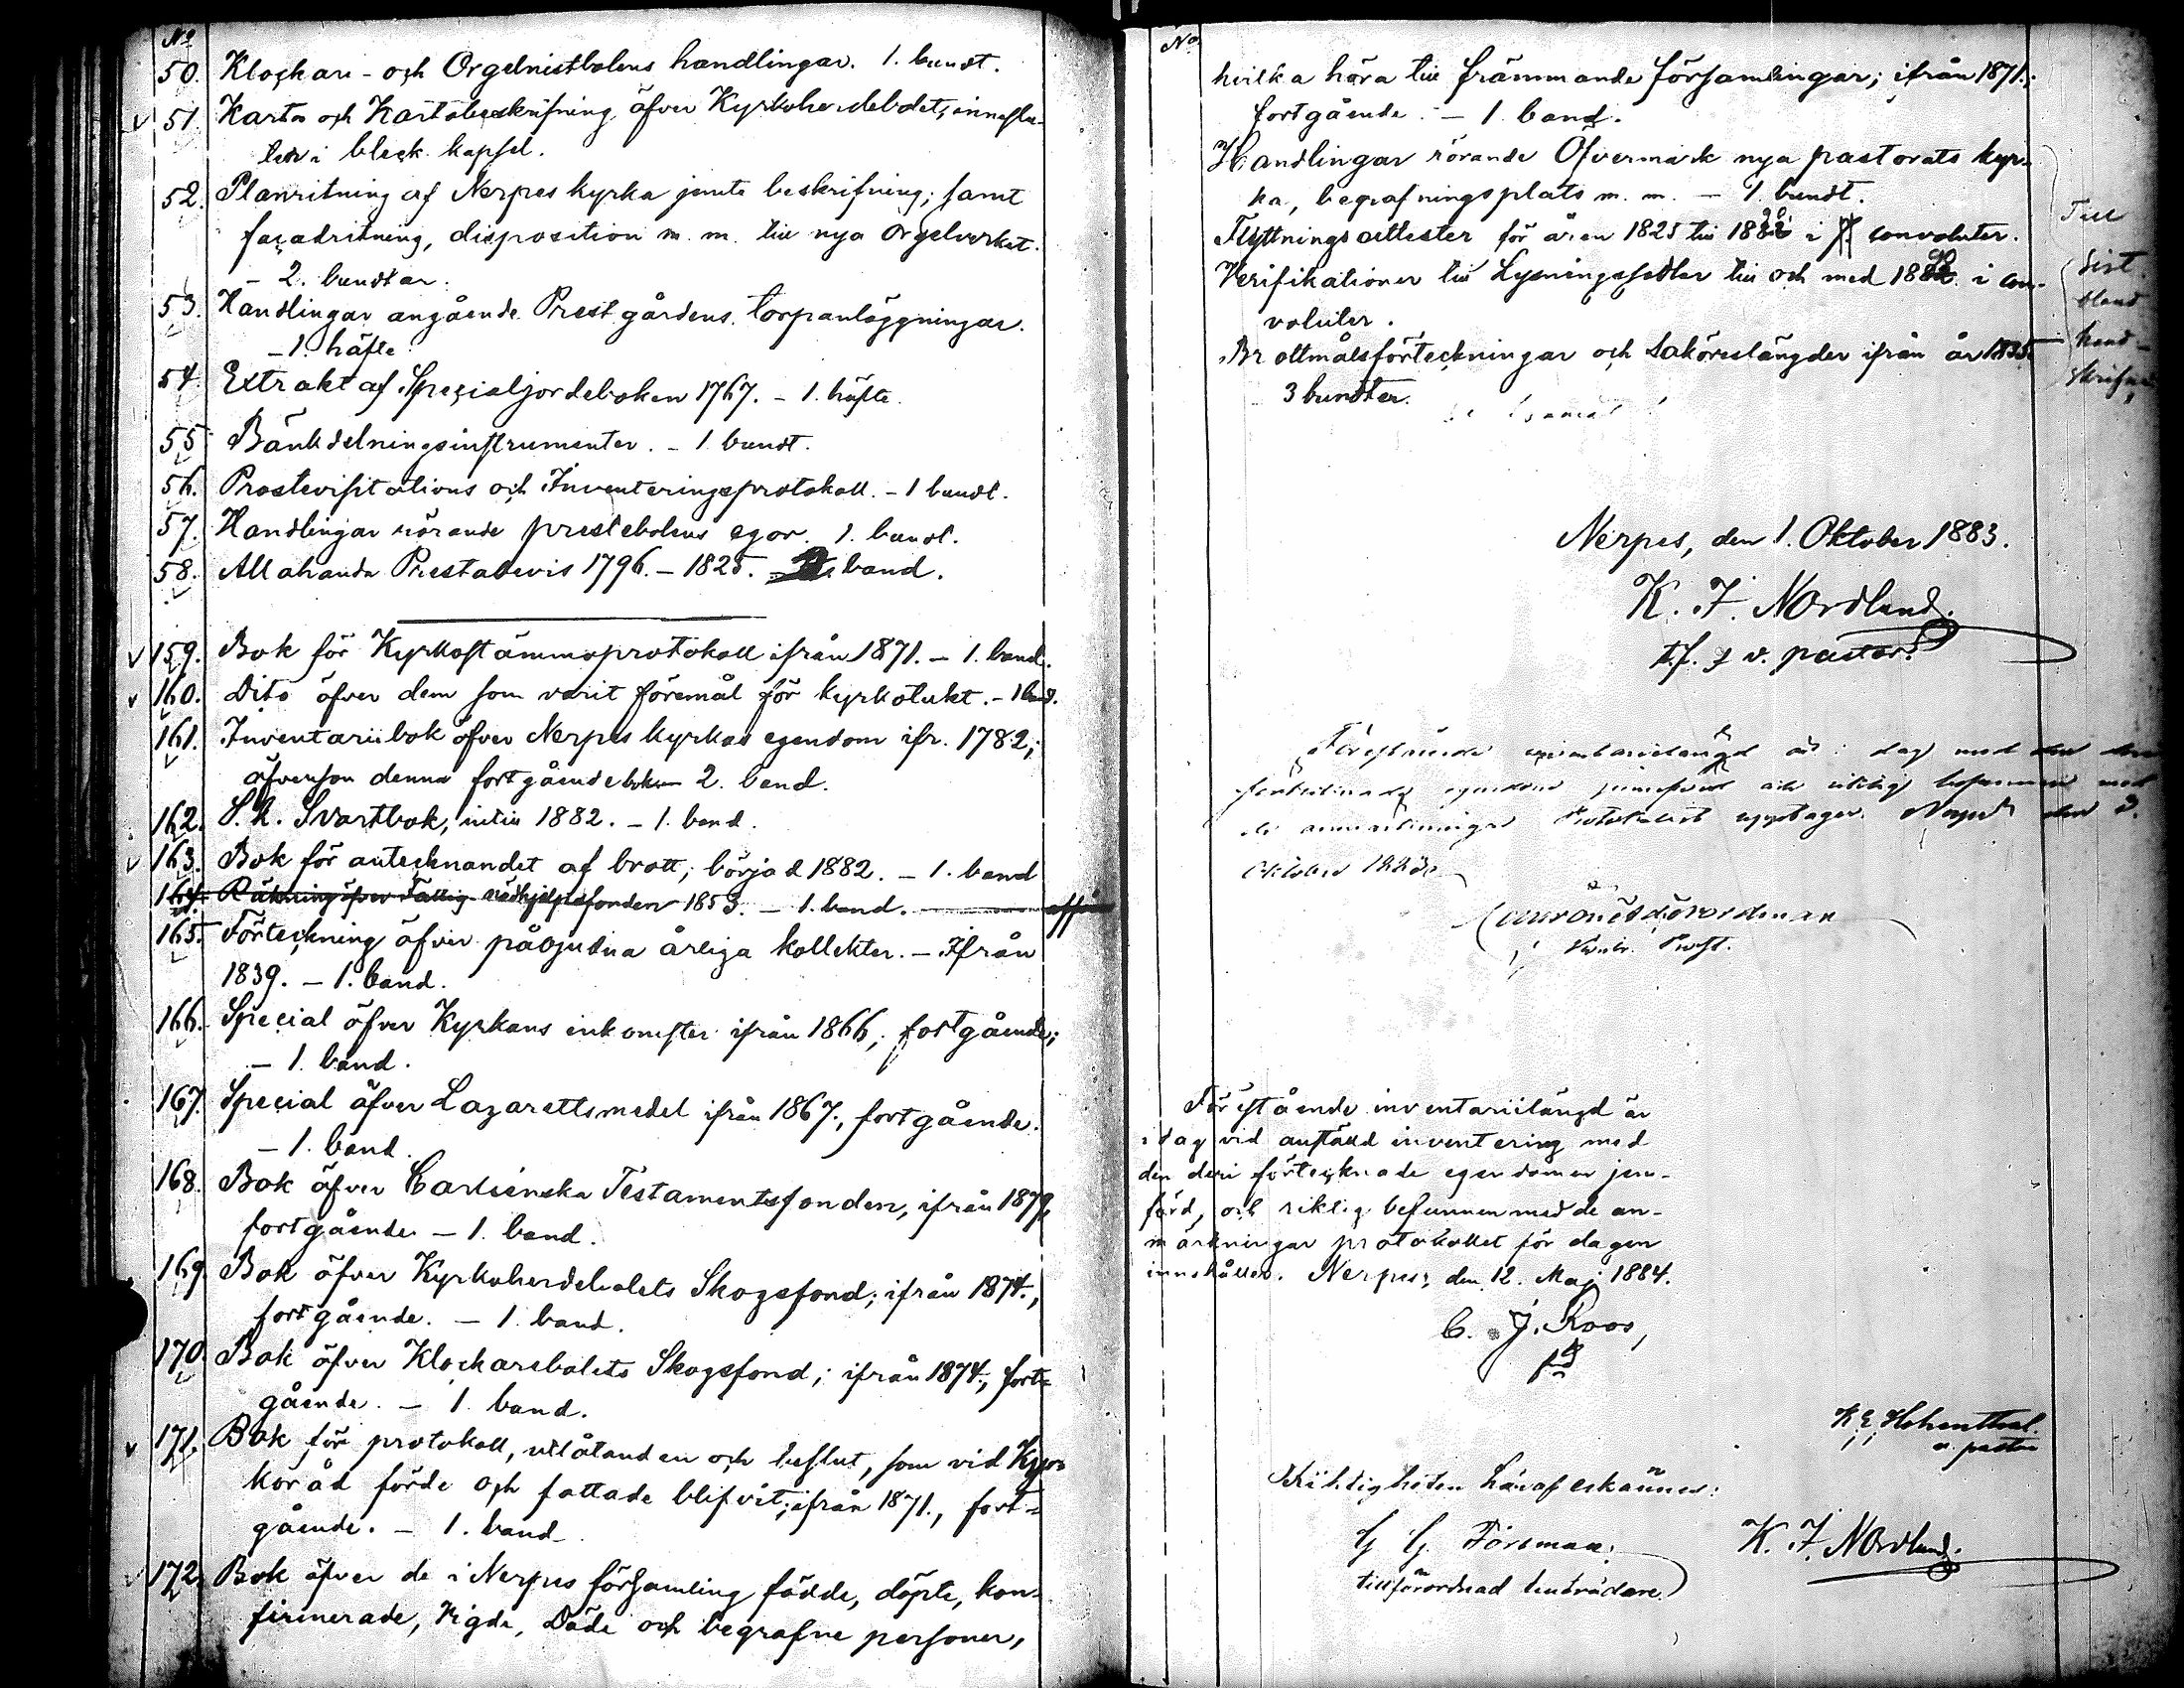 No
50. Klockare- och Orgelnistbolens handlingar. 1. bundt.
51. Karta och Kartabeskrifning öfver Kyrkoherdebolet; inneslu-
ten i bleck kapsel.
52. Planritning af Nerpes kyrka jemte beskrifning; samt
façadritning, disposition m. m. till nya Orgelverket.
– 2. bundtar.
53. Handlingar angående Prestgårdens torpanläggningar.
– 1. häfte.
54. Extrakt af Specialjordeboken 1767. – 1. häfte.
55. Bänkdelningsinstrumenter. – 1. bundt.
56. Prostevisitations och Inventeringsprotokoll. – 1 bundt.
57. Handlingar rörande prestebolens egor. 1. bundt.
58. Allahanda Prestabevis 1796. – 1825. band.
159. Bok för Kyrkostämmoprotokoll ifrån 1871. – 1. band.
160. Dito öfver dem som varit föremål för kyrkotukt. – 1 band.
161. Inventariibok öfver Nerpes kyrkas egendom ifr. 1782;
äfvensom denna fortgående boken 2. band.
162. S. K. Svartbok, intill 1882. – 1. band.
163. Bok för antecknandet af brott, börjad 1882. – 1. band
164. Räkning öfver Fattig- nödhjelpsfonden 1853. – 1. band.
165. Förteckning öfver påbjudna årliga kollekter. – Ifrån
1839. – 1. band.
166. Special öfver Kyrkans inkomster ifrån 1866; fortgående;
– 1. band.
167. Special öfver Lazarettsmedel ifrån 1867., fortgående.
– 1. band.
168. Bok öfver Carlienska Testamentsfonden, ifrån 1879,
fortgående – 1. band.
169. Bok öfver Kyrkoherdebolets Skogsfond; ifrån 1874.,
fortgående. – 1. band.
170. Bok öfver Klockarebolets Skogsfond; ifrån 1874., fort=
gående. – 1. band.
171. Bok för protokoll, utlåtanden och beslut, som vid Kyr=
koråd förde och fattade blifvit; ifrån 1871., fort=
gående. – 1. band
172. Bok öfver de i Nerpes församling födde, döpte, kon-
firmerade, Vigde, Döde och begrafne personer,
No
hvilka höra till främmande församlingar; ifrån 1871.;
fortgående. – 1. band.
Handlingar rörande Öfvermark nya pastorats kyr-
ka, begrafningsplats m. m. – 1. bundt.
Flyttningsattester för åren 1825 till 18 i convoluter.
Verifikationer till Lysningssedlar till och med 18 i con-
voluter.
Brottmålsförteckningar och Saköreslängder ifrån år 1835
3 bundter.
Till
sist
bland
hand-
skrifter,
Nerpes, den 1. Oktober 1883.
K. J. Nordlund.
t.f. v. pastor.
Förestående inventarielängd är i dag med den
förtecknade egendom jemförd och riktig befunnen med
de anmärkningar Protokollet upptager. Nerpes den 2.
Oktober 1883
Prost.
Förestående inventariilängd är
i dag vid anställd inventering med
den deri förtecknade egendomen jem-
förd, och riktig befunnen med de an-
märkningar protokollet för dagen
innehåller. Nerpes, den 12. Maj 1884.
C. J. Roos,
K. E. Hohenthal.
v. pastor
Riktigheten häraf erkännes:
G. G. Forsman.
tillförordnad tillträdare.
K. J. Nordlund.